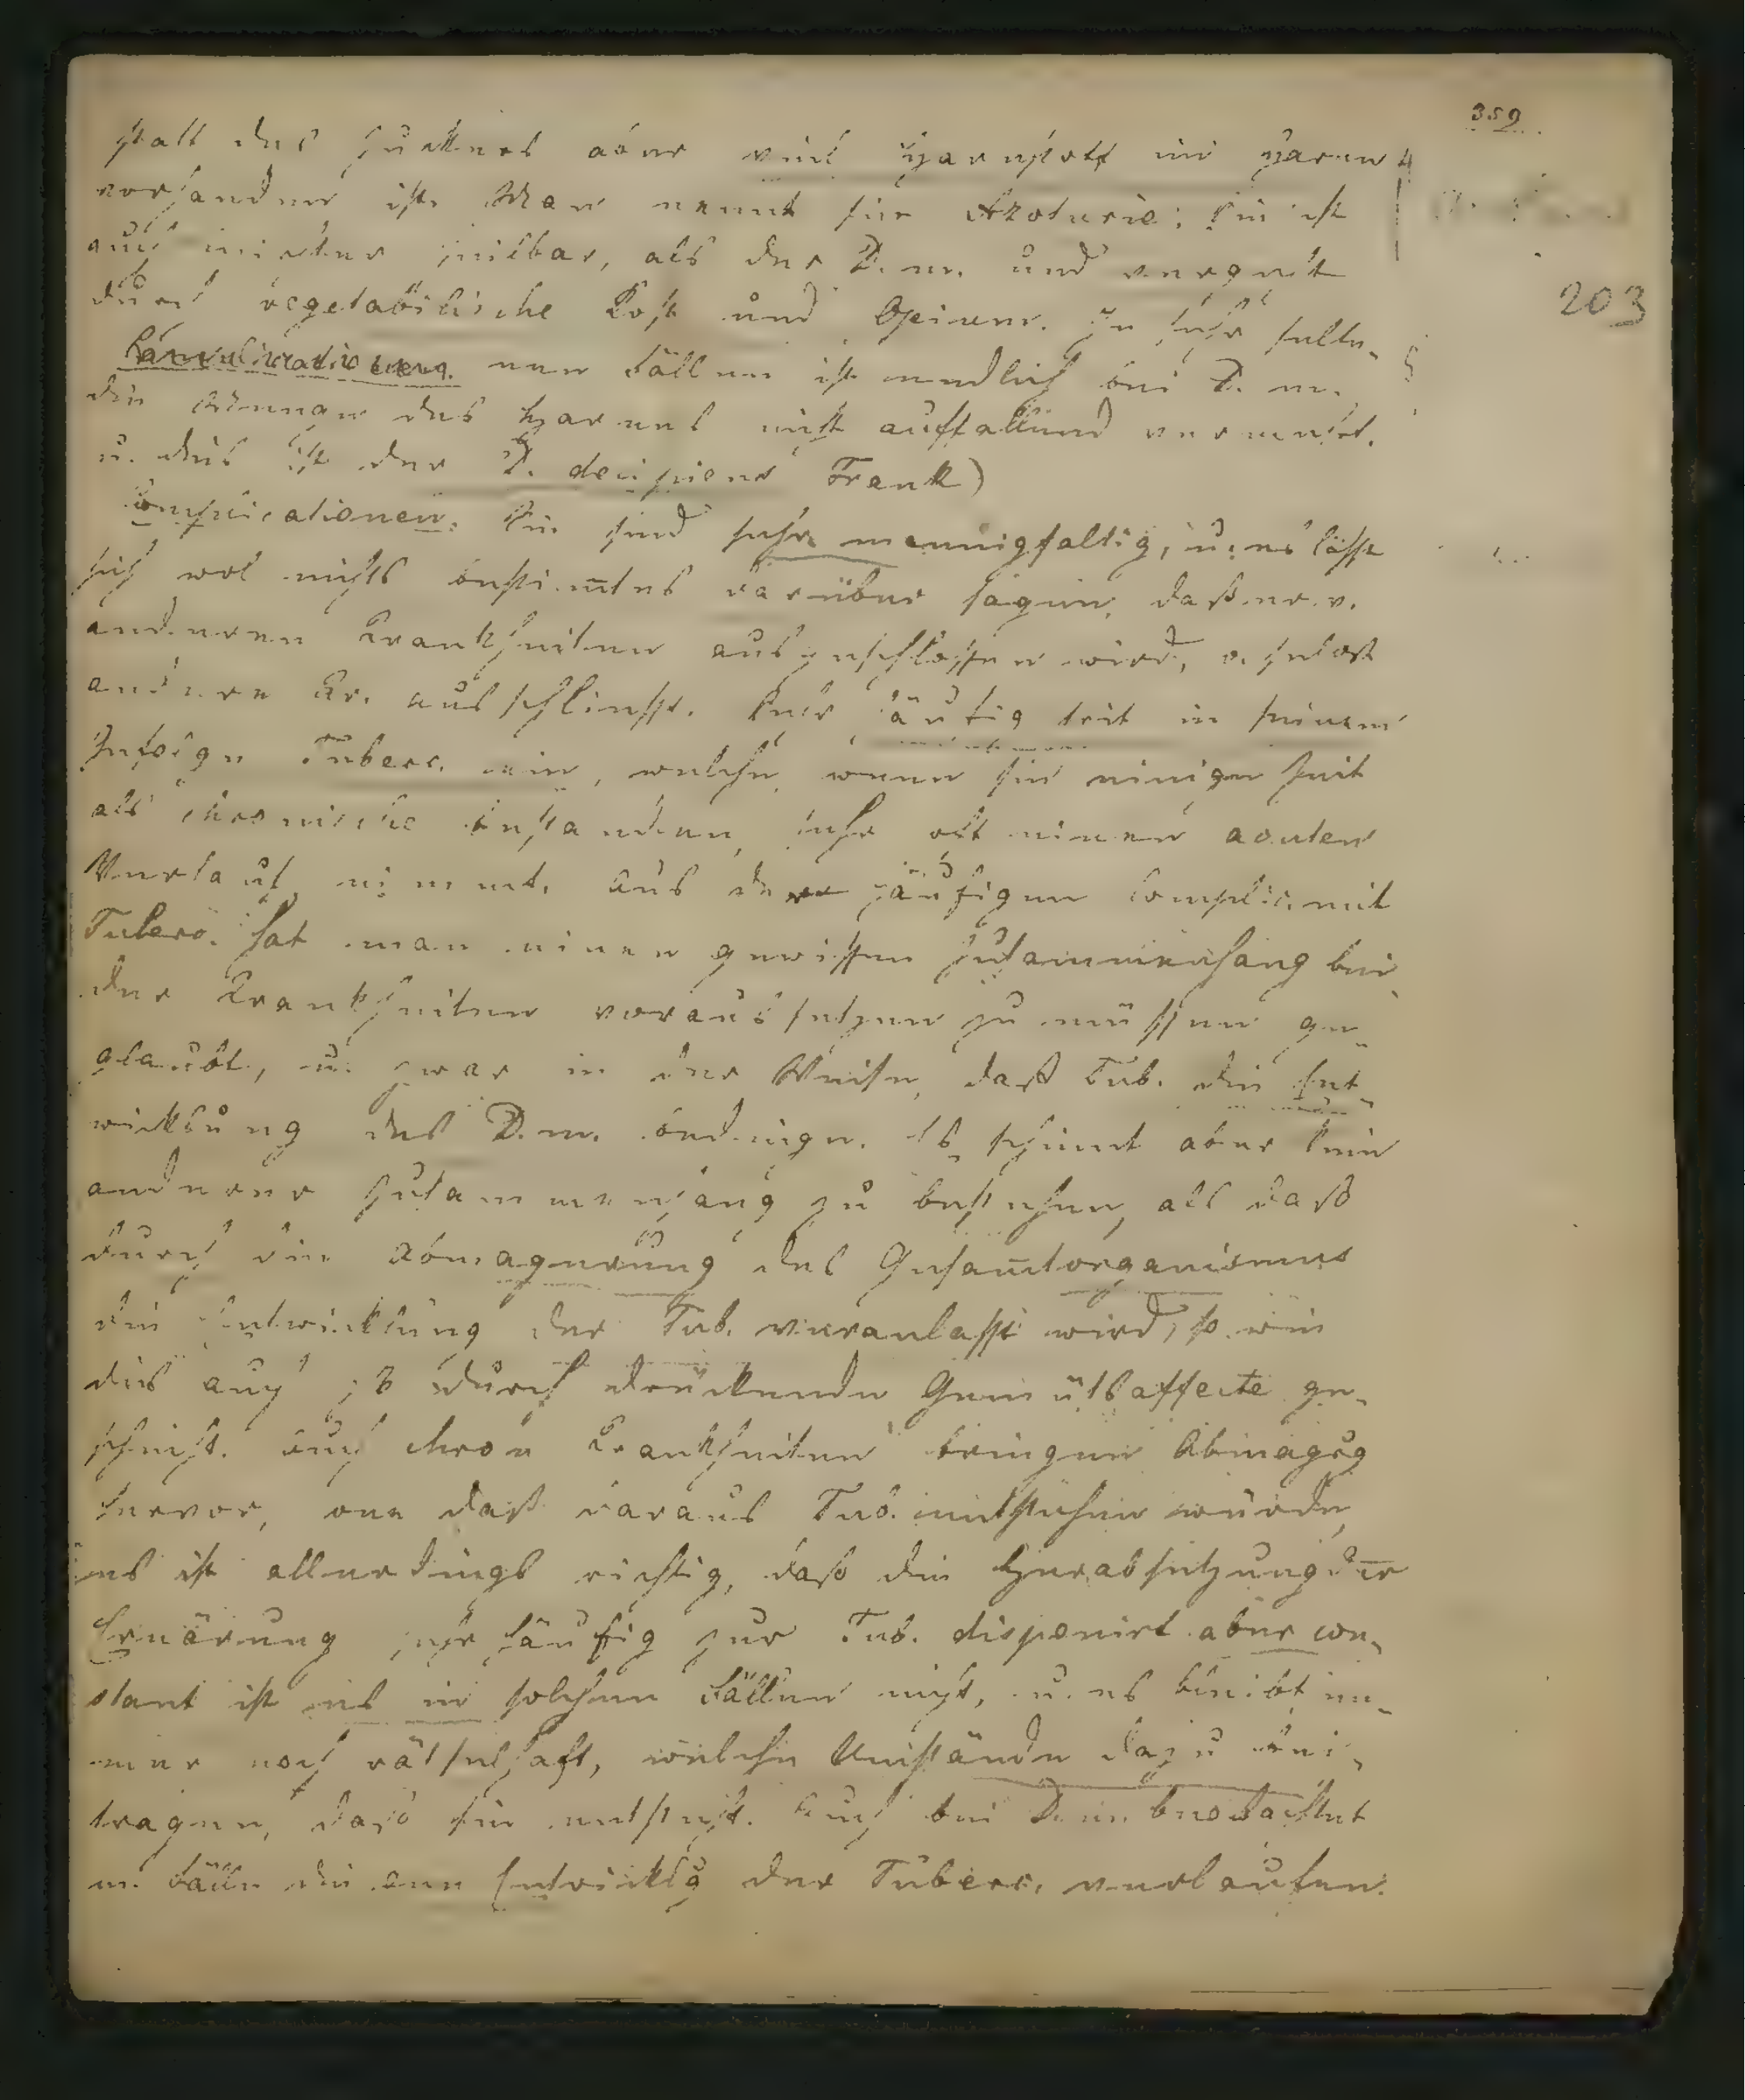 359
203
statt des Zuckers aber viel Harnstoff im Harn
vorhanden ist. Man nennt sie Azoturie; sie ist
auch leichter heilbar, als der D. m. und vergeht
durch vegetabilische Kost und Opium. In sehr selte-
nen Fällen ist endlich bei D. m.
die Menge des Harnes nicht auffallend vermehrt.
u. dies ist der D. decipiens Frank)
Complicationen. Sie sind sehr mannigfaltig, u. es lässt
sich wol nichts bestimtes darüber sagen, daß er v.
anderen Krankheiten ausgeschlossen wird, o. selbst
andere Kr. ausschliesst. Sehr häufig trit in seinem
Gefolge Tuberc. ein, welche, wenn sie einige Zeit
als chronische bestanden, sehr oft einen acuten
Verlauf nimmt. Aus der häufigen Complic. mit
Tuberc. hat man einen gewissen Zusammenhang bei-
der Krankheiten voraussetzen zu müssen ge-
glaubt, u. zwar in der Weise, daß Tub. die Ent-
wicklung des D. m. bedinge. Es scheint aber kein
anderer Zusammenhang zu bestehen, als daß
durch die Abmagerung des Gesamtorganismus
die Entwicklung der Tub. veranlasst wird, so wie
dies auch z B durch drückende Gemütsaffecte ge-
schieht. Auch chron Krankheiten bringen Abmagrg
hervor, one daß daraus Tub. entstehen würde,
es ist allerdings richtig, daß die Herabsetzung der
Ernärung sehr häufig zur Tub. disponirt aber con-
stant ist es in solchen Fällen nicht, u. es bleibt im-
mer noch rätselhaft, welche Umstände dazu bei-
tragen, daß sie entsteht. Auch bei D. m. beobachtet
m. Fälle die one Entwicklg der Tuberc. verlaufen.